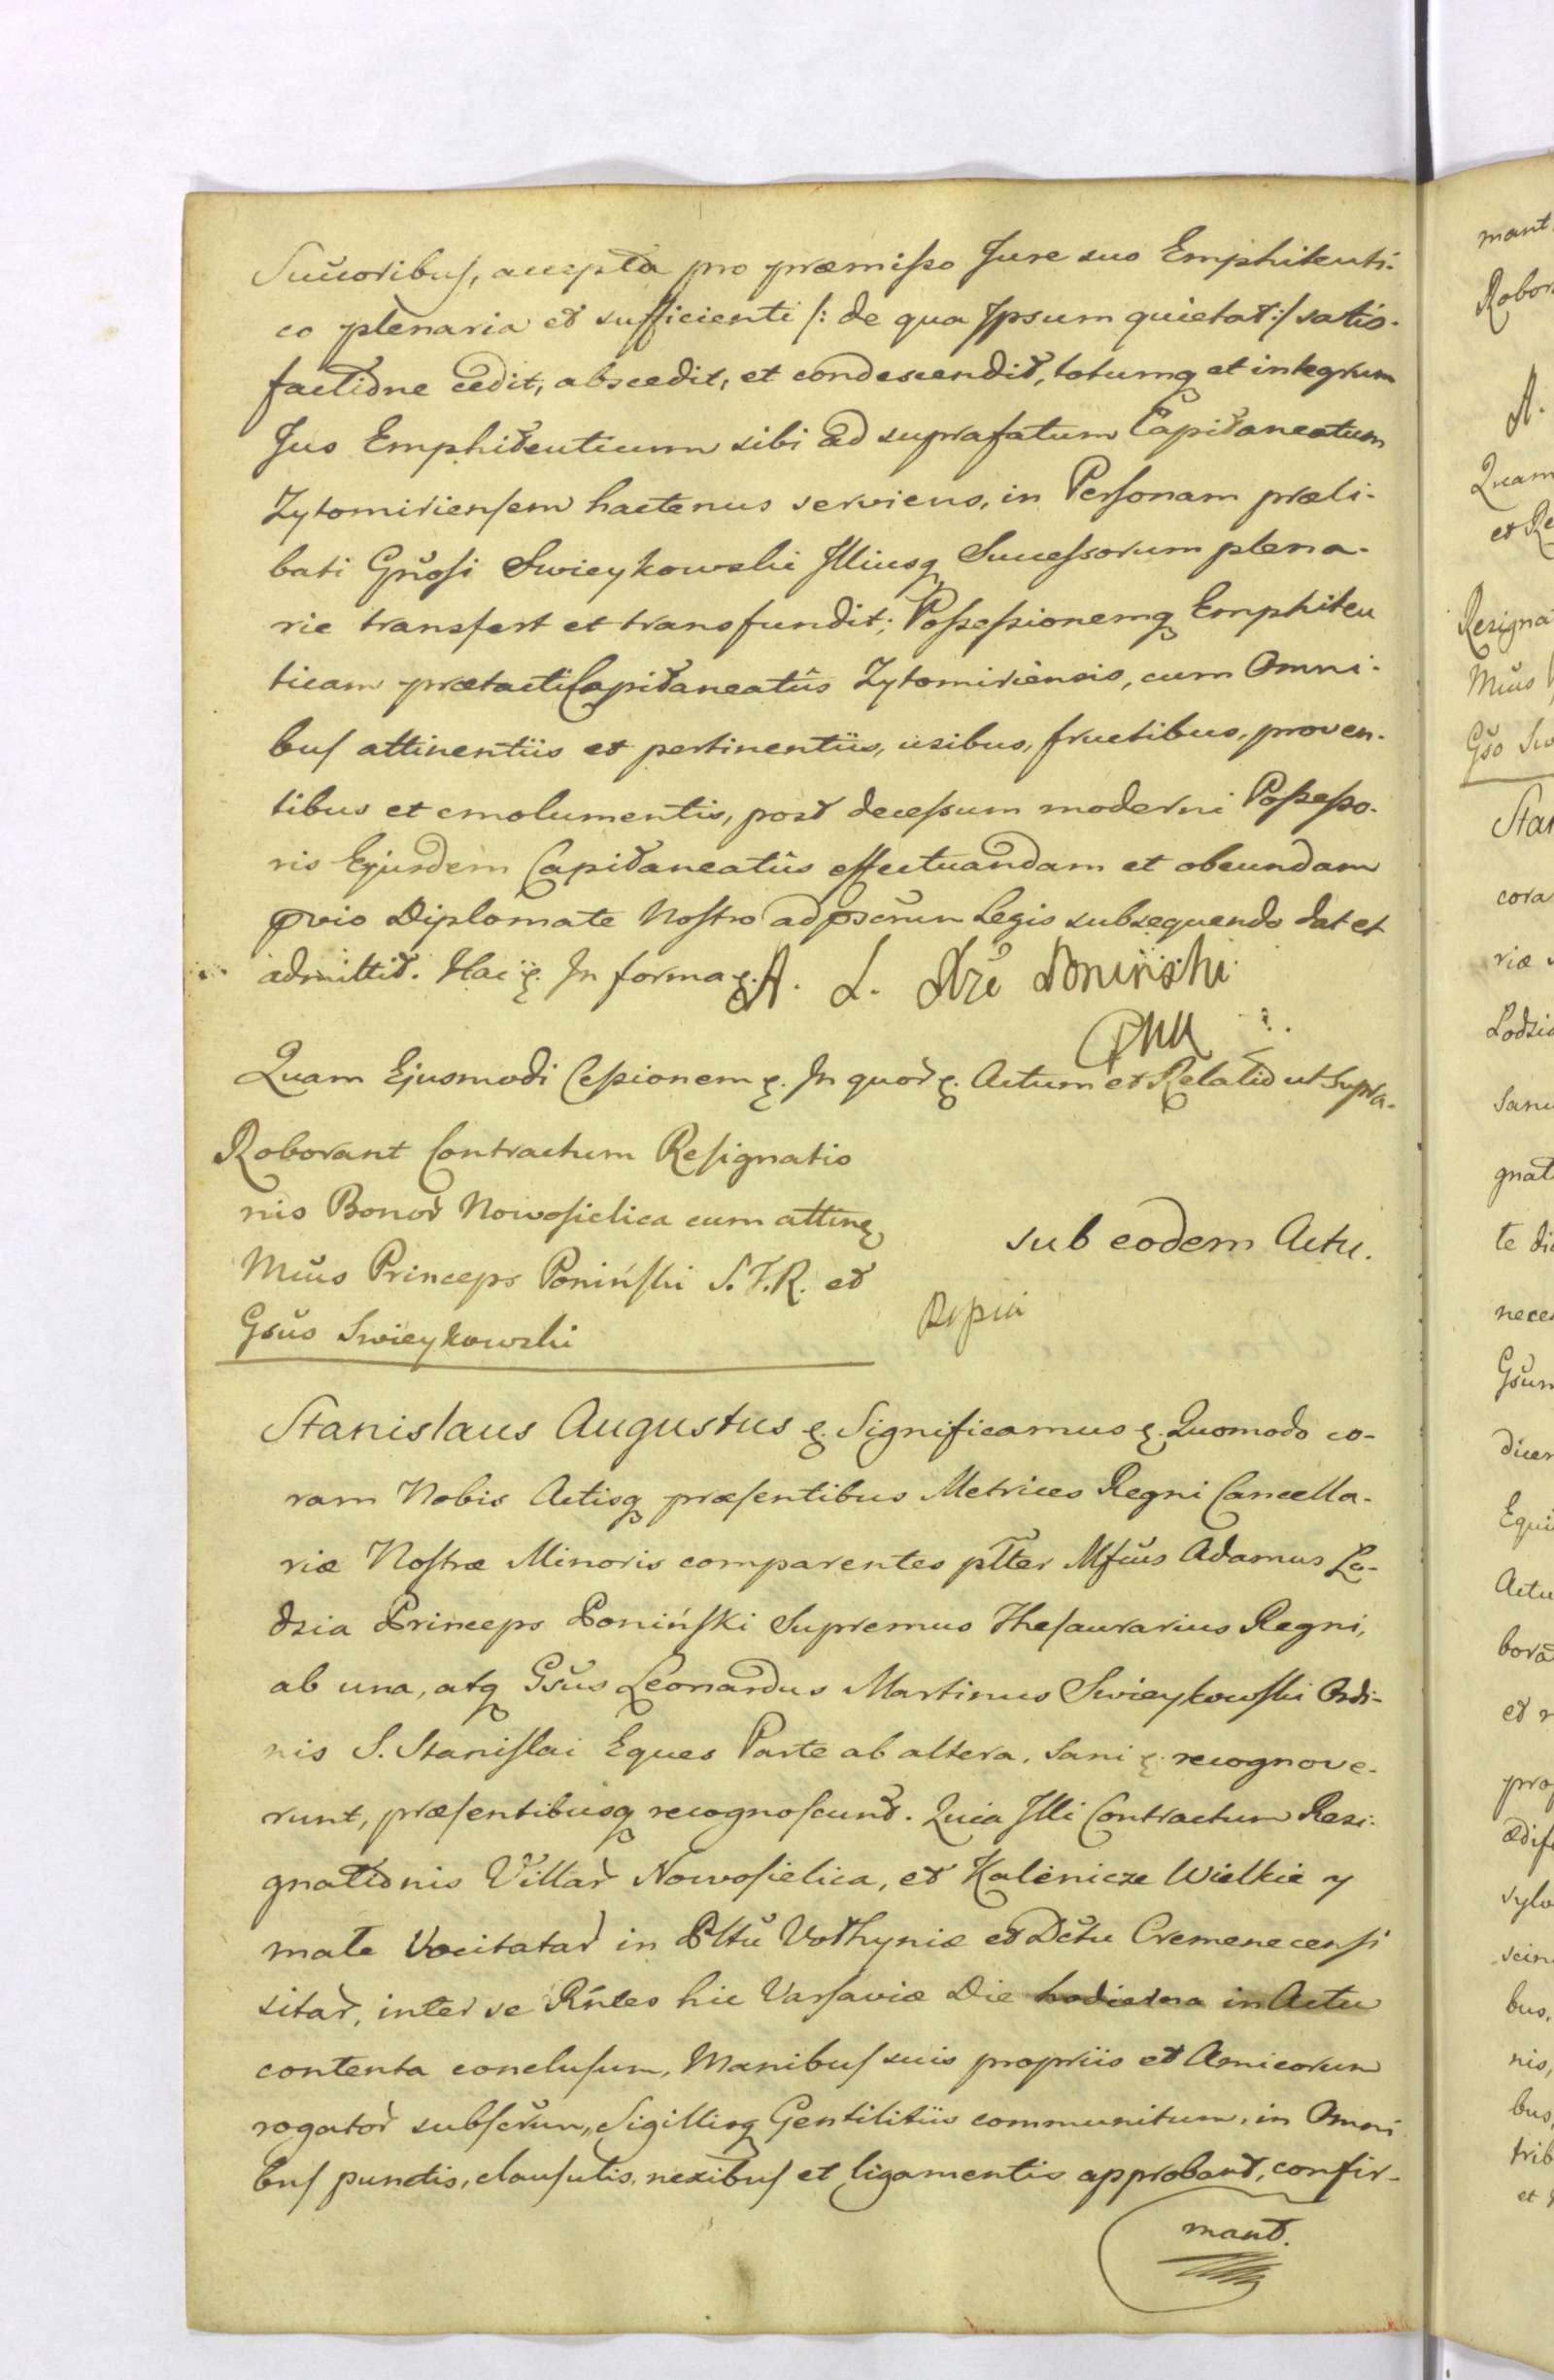 Succoribus, accepta pro præmisso Jure suo Emphiteuti-
co plenaria et sufficienti /: de qua Ipsum quietat :/ satis-
factione cedit, abscedit, et condescendit, totumq et integrum
Jus Emphiteuticum sibi ad suprafatum Capitaneatum
Zytomiriensem hactenus serviens, in Personam præli-
bati Gnosi Swieykowski Illiusq Successorum plena-
rie transfert et transfundit; Possessionemq Emphiteu
ticam prætacti Capitaneatûs Zytomiriensis, cum Omni-
bus attinentiis et pertinentiis, usibus, fructibus, proven-
tibus et emolumentis, post decessum moderni Possesso-
ris Ejusdem Capitaneatûs effectuandam et obeundam
pvio Diplomate Nostro ad pscrum Legis subsequendo dat et
admittit. Hac ę. In forma ę. A. L. Xże Poninski
PWK
Quam Ejusmodi Cessionem ę. In quor ę. Actum et Relatio ut Supra.
Roborant Contractum Resignatio
nis Bonor Nowosielica cum attinę
Mŭus Princeps Poniński S.T.R. et
Gsŭs Swieykowski
sub eodem Actu.
Stanislaus Augustus ę. Significamus ę. Quomodo co-
ram Nobis Actisq præsentibus Metrices Regni Cancella-
riæ Nostræ Minoris comparentes pltter Mfŭs Adamus Lo-
dzia Princeps Poniński Supremus Thesaurarius Regni,
ab una, atq Gsŭs Leonardus Martinus Swieykowski Ordi-
nis S. Stanislai Eques Parte ab altera. Sani ę. recognove-
runt, præsentibusq recognoscunt. Quia Illi Contractum Resi-
gnationis Villar Nowosielica, et Kalenicze Wielkie y
małe Vocitatar in Plttŭ Volhyniæ et Dctu Cremenecensi
sitar, inter se Rńtes hic Varsaviæ Die hodierna in Actu
contenta conclusum, Manibus suis propriis et Amicorum
rogator subscrŭm, Sigillisq Gentilitiis communitum, in Omni
bus punctis, clausulis, nexibus et ligamentis approbant, confir-
mant.
mant
Robor
A.
Quam
et Re
Resigna
Mŭus
Gso Sw
Stan
cora
riæ
Lodzia
Sani
gnat
te di
nece
Gsum
dicen
Equi
Actu
bora
et r
prop
ædif
sylv
scin
bus,
nis,
bus,
trib
et